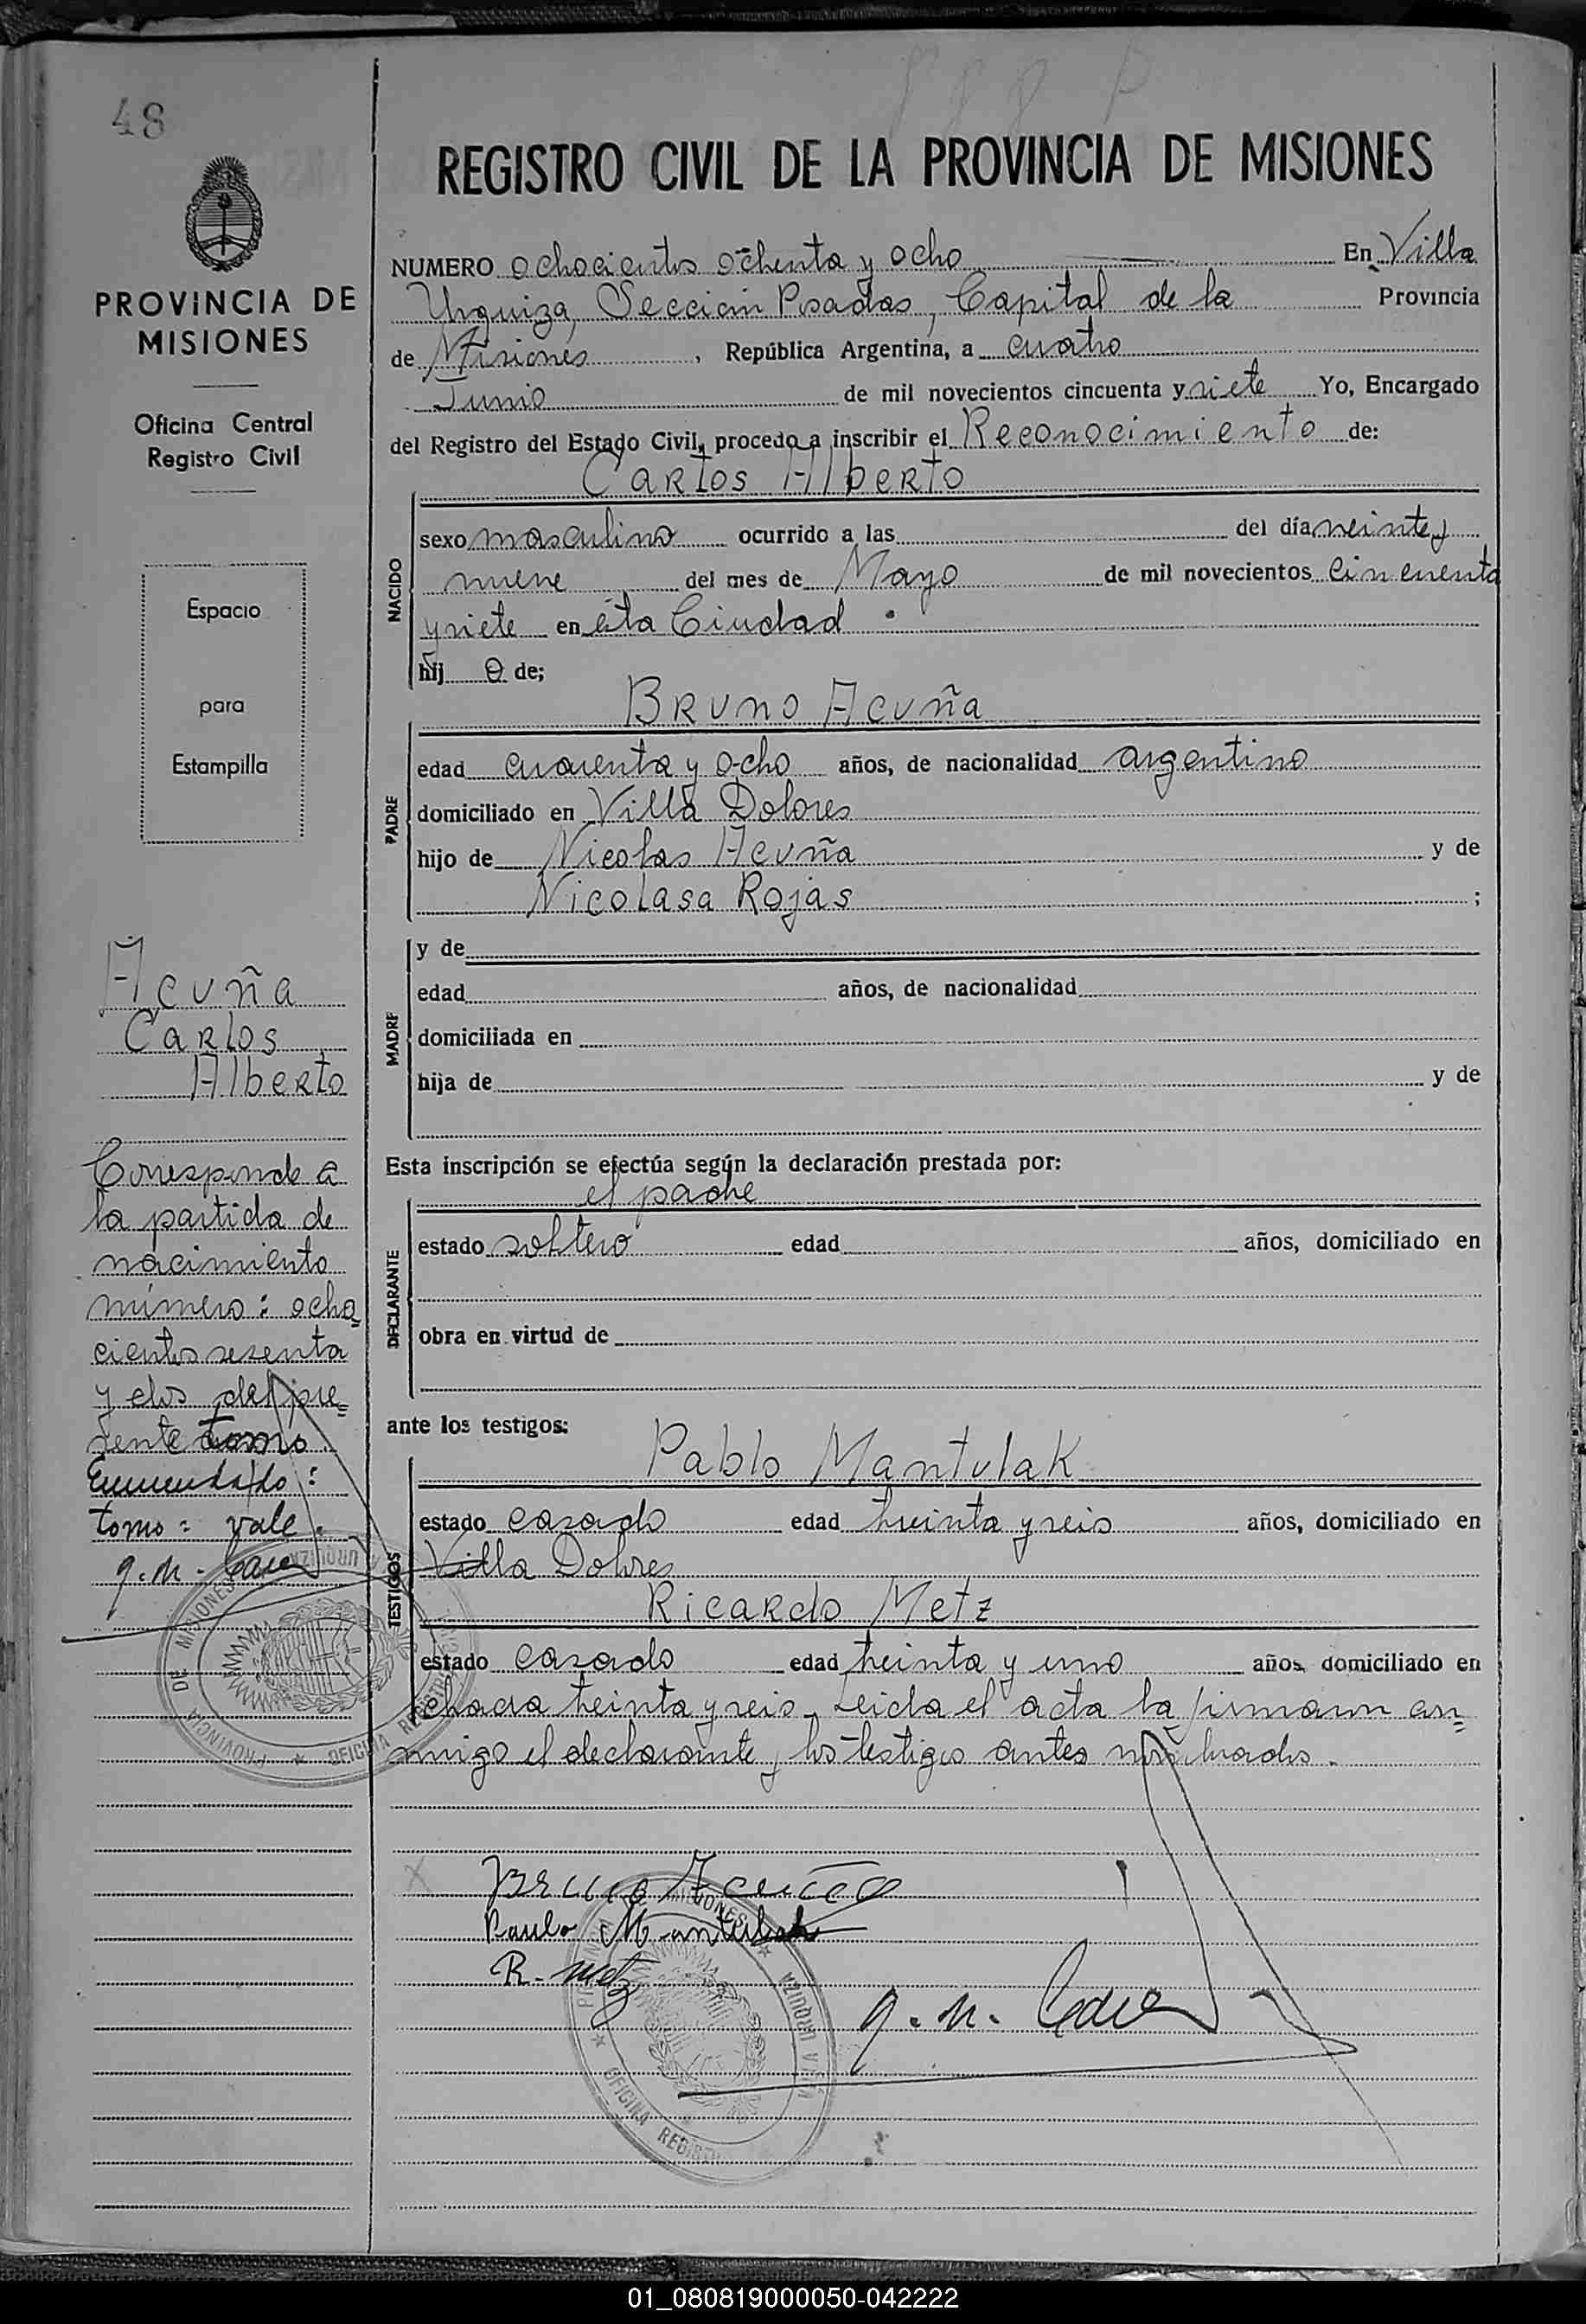 48
888 P
PROVINCIA DE
MISIONES
Oficina Central
Registro Civil
Espacio
para
Estampilla
Acuña
Carlos
Alberto
Corresponde a
la partida de
nacimiento
número: ocho
cientos sesenta
y dos del pre=
sente tomo.
Enmendado:
tomo = vale.
REGISTRO CIVIL DE LA PROVINCIA DE MISIONES
NUMERO ochocientos ochenta y ocho En Villa
Urquiza, Sección Posadas, Capital de la Provincia
de Misiones, República Argentina, a cuatro
Junio de mil novecientos cincuenta y siete Yo, Encargado
del Registro del Estado Civil, procedo a inscribir el Reconocimiento de:
Carlos Alberto
NACIDO
sexo masculino ocurrido a las del día veinte y
nueve del mes de Mayo de mil novecientos cincuenta
y siete en ésta Ciudad.
hij o de;
Bruno Acuña
PADRE
edad cuarenta y ocho años, de nacionalidad argentino
domiciliado en Villa Dolores
hijo de Nicolas Acuña y de
Nicolasa Rojas ;
MADRE
y de
edad años, de nacionalidad
domiciliada en
hija de y de
Esta inscripción se efectúa según la declaración prestada por:
el padre
DECLARANTE
estado soltero edad años, domiciliado en
obra en virtud de
ante los testigos:
Pablo Mantulak
TESTIGOS
estado casado edad treinta y seis años, domiciliado en
Villa Dolores
Ricardo Metz
estado casado edad treinta y uno años, domiciliado en
chacra treinta y seis. Leida el acta la firmaron con=
migo el declarante y los testigos antes nombrados.
Bruno Acuña
Paulo Mantulak
R. Metz
PROVINCIA DE MISIONES
OFICINA REGISTRO
VILLA URQUIZA
01_080819000050-042222